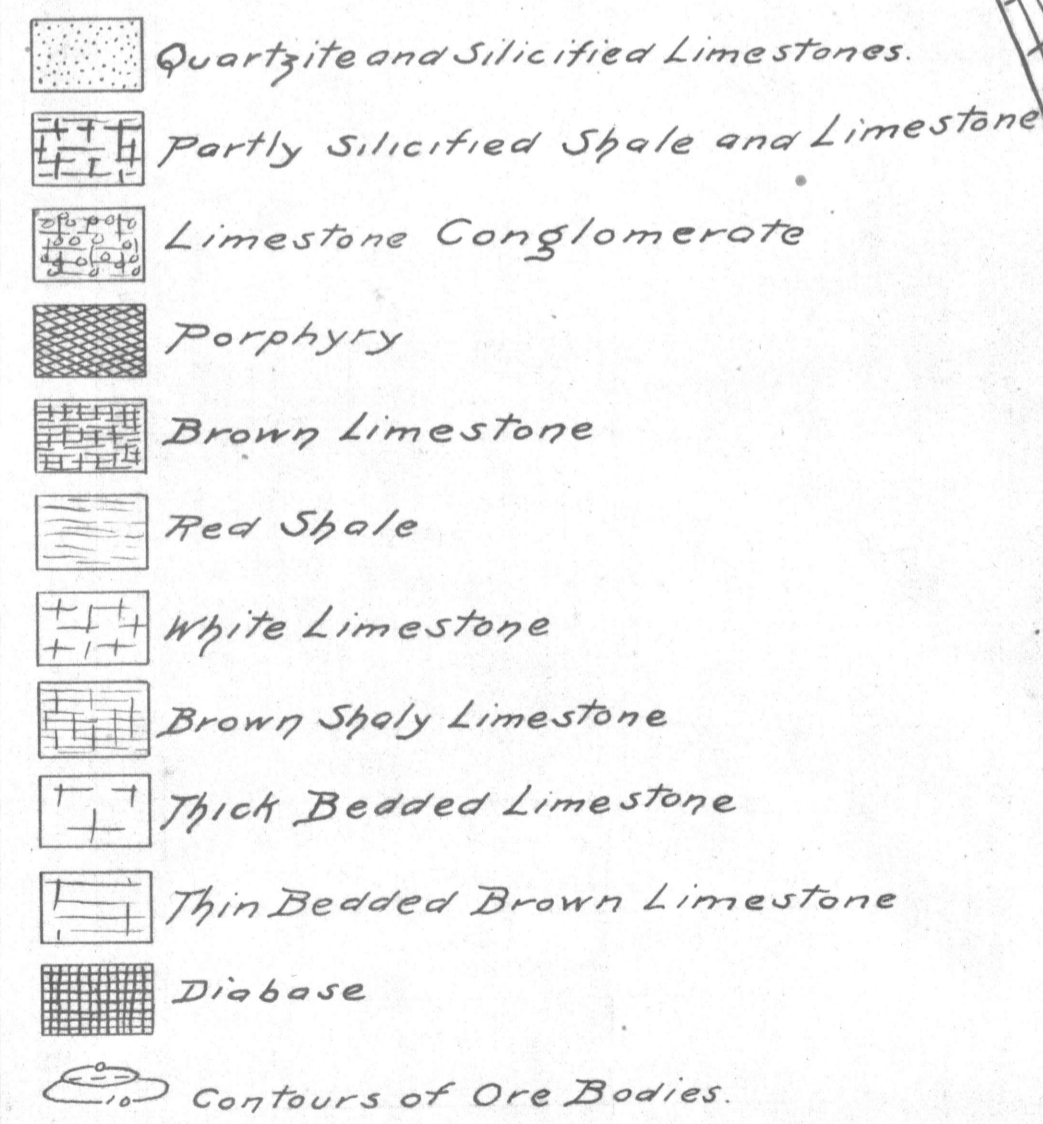 Quartzite and Silicified Limestones.
Partly Silicified Shale and Limestone
Limestone Conglomerate
Porphyry
Brown Limestone
Red Shale
White Limestone
Brown Shaly Limestone
Thick Bedded Limestone
Thin Bedded Brown Limestone
Diabase
0
10
Contours of Ore Bodies.